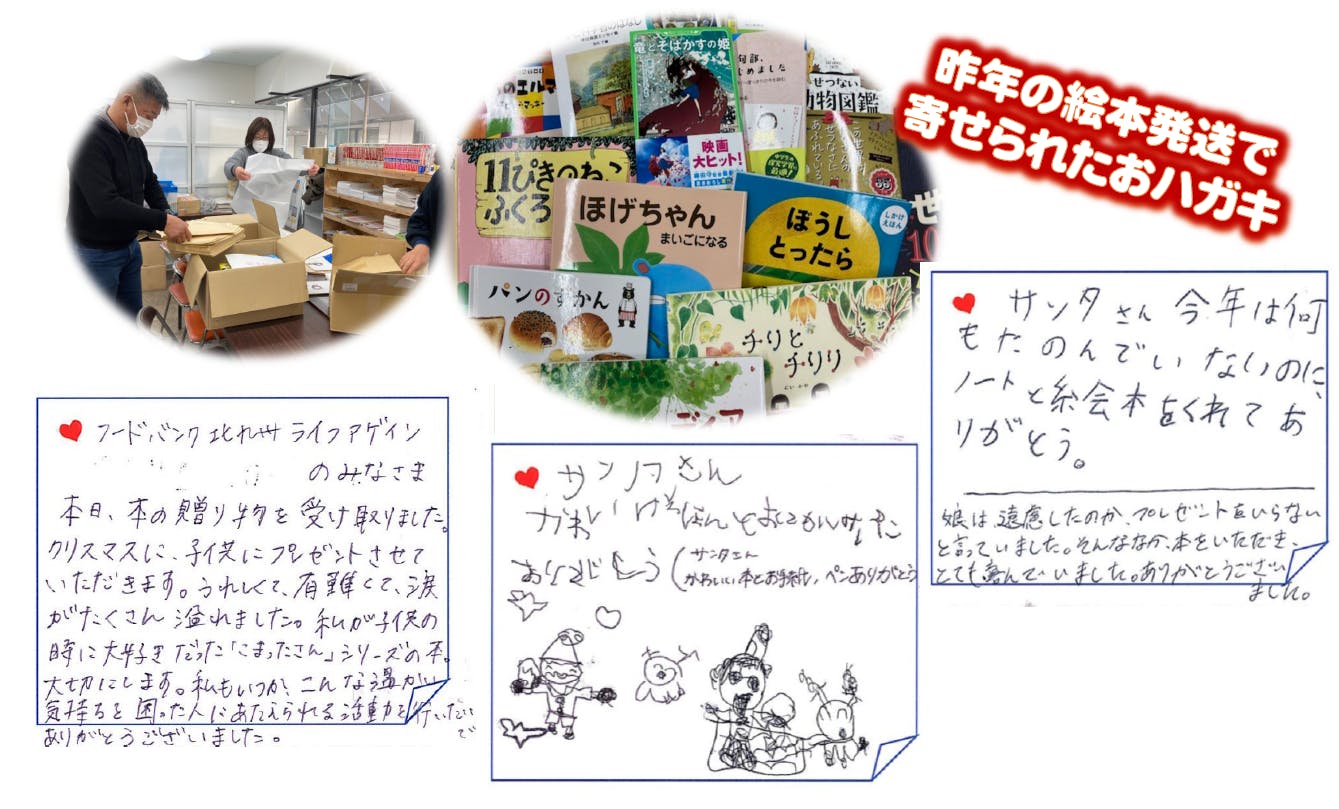 昨年の絵本発送で
寄せられたおハガキ
竜とそばかすの姫
せつない
動物図鑑
映画
大ヒット!
11ぴきのねこ
ふくろ
ほげちゃん
まいごになる
ぼうし
とったら
しかけ
えほん
パンのずかん
チリと
チリリ
サンタさん 今年は何
もたのんでいないのに、
ノートと絵本をくれてあ
りがとう。
娘は、遠慮したのか、プレゼントをいらない
と言っていました。そんななか、本をいただき、
とても喜んでいました。ありがとうござい
ました。
フードバンク北九州 ライフアゲイン
のみなさま
本日、本の贈り物を受け取りました。
クリスマスに、子供にプレゼントさせて
いただきます。うれしくて、有難くて、涙
がたくさん溢れました。私が子供の
時に大好きだった「こまったさん」シリーズの本。
大切にします。私もいつか、こんな温かい
気持ちを困った人にあたえられる活動を行いたい
で
ありがとうございました。
サンタさん
かわいい
(サンタさん
かわいい本とお手紙、ペンありがとう